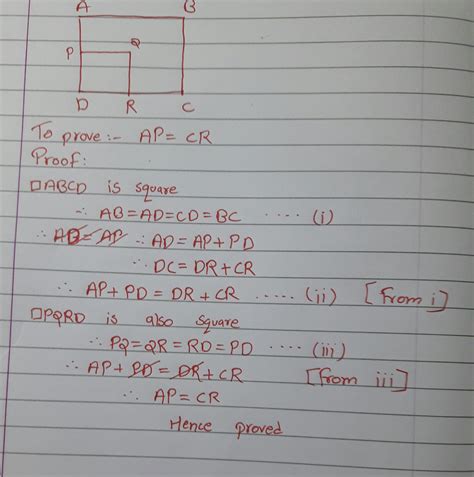 A B
P Q
D R C
To prove:- AP = CR
Proof:
□ABCD is square
∴ AB = AD = CD = BC ..... (i)
∴ AD = AP ∴ AD = AP + PD
∴ DC = DR + CR
∴ AP + PD = DR + CR ..... (ii) [from i]
□PQRD is also square
∴ PQ = QR = RD = PD .... (iii)
∴ AP + PD = DR + CR [from iii]
∴ AP = CR
Hence proved